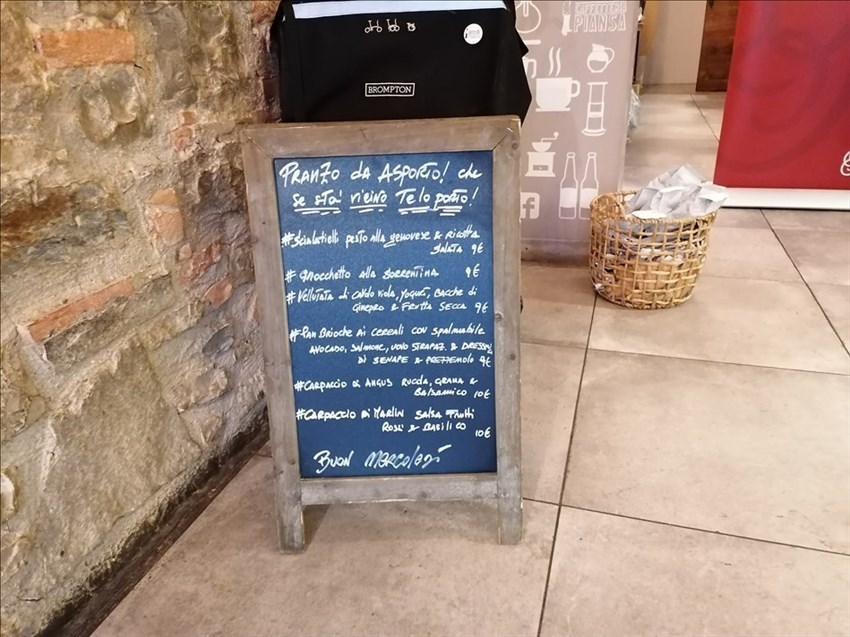 BROMPTON
PIANSA
PRANZO da ASPORTO! che
se sta' vicino Te lo porto!
#Scialatielli pesto alla genovese & ricotta
salata 9€
# Gnocchetto alla Sorrentina 9€
#Vellutata di cavolo viola, yogurt, bacche di
Ginepro & Frutta secca 9€
#Pan Brioche ai cereali con spalmabile
avocado, salmone, uovo strapaz. & dressing
di senape & prezzemolo 9€
#Carpaccio di Angus rucola, grana &
Balsamico 10€
#Carpaccio di Marlin salsa frutti
Rossi & Basilico 10€
Buon Mercoledì